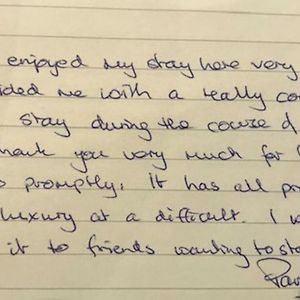 enjoyed my stay here very
ided me with a really co
stay during the course d
hank you very much for
promptly, It has all p
luxury at a difficult. I w
it to friends wanting to sta